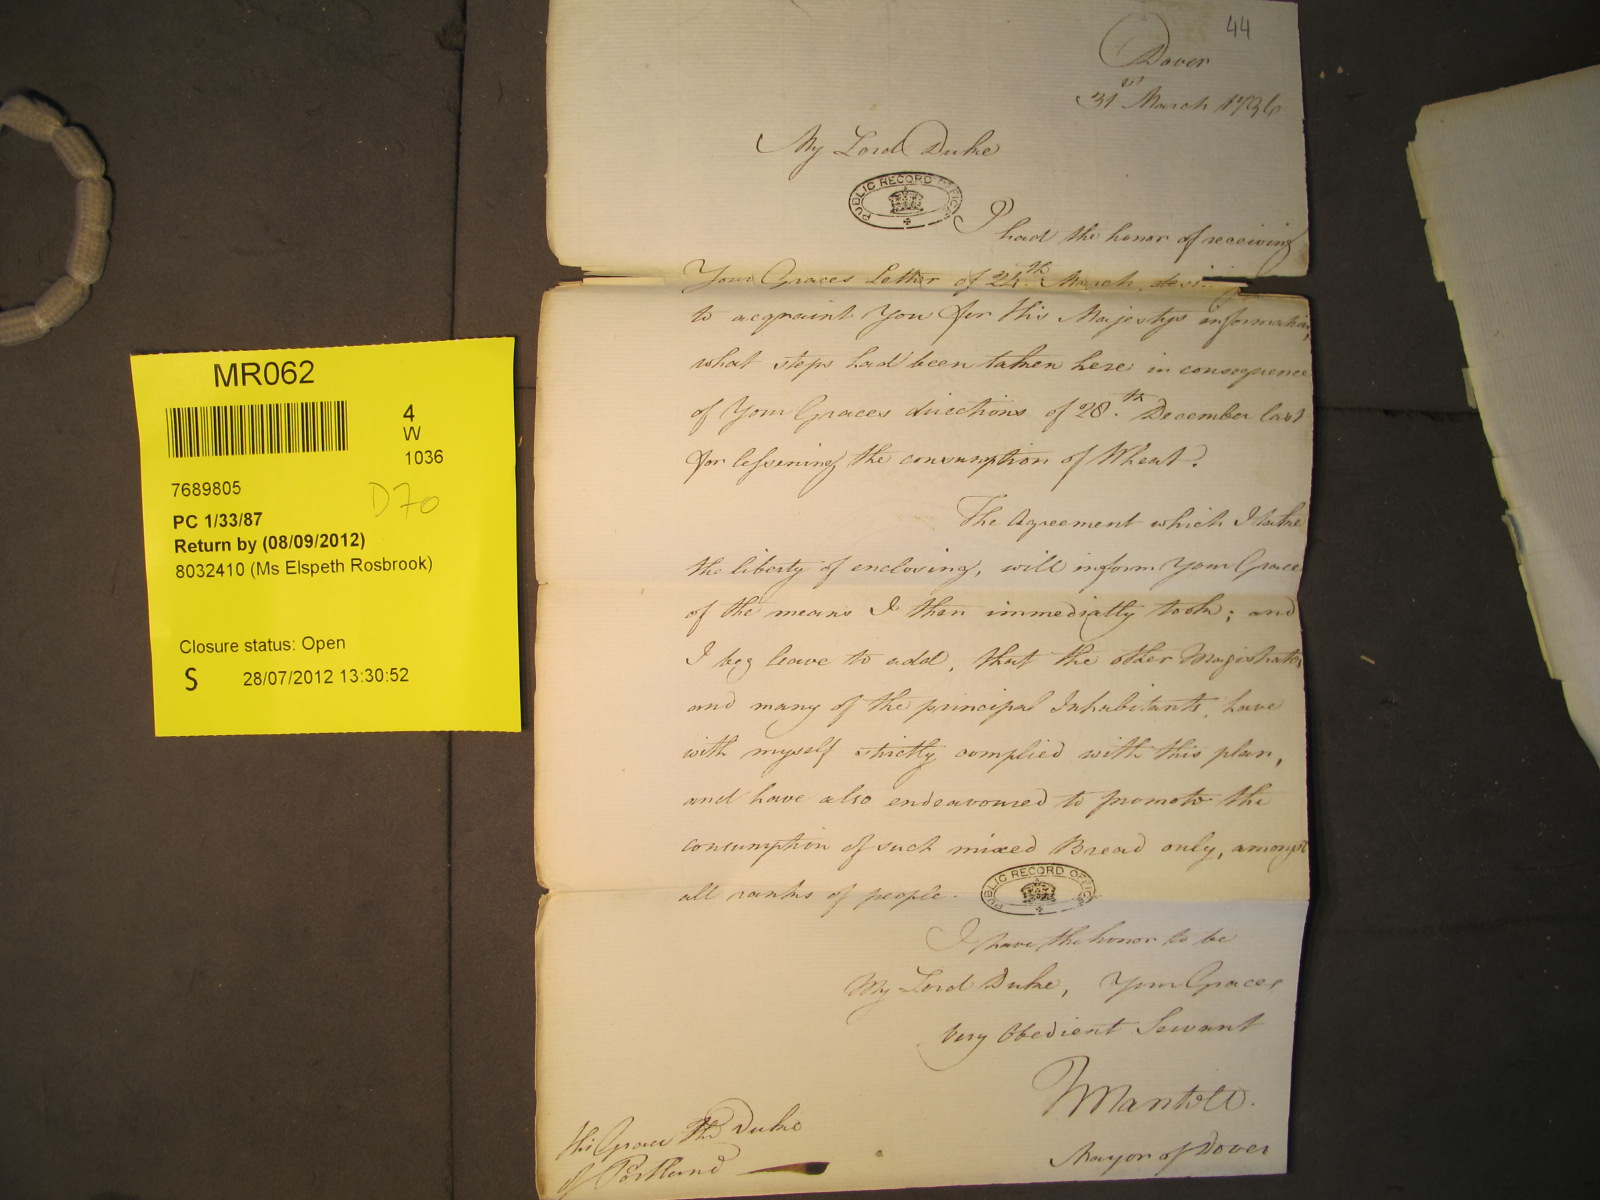 44
Dover
31st March 1796
My Lord Duke
PUBLIC RECORD OFFICE
I had the honor of receiving
Your Graces Letter of 24th. March,
to acquaint You for His Majestys information,
what steps had been taken here in consequence
of Your Graces directions of 28.th December last
for lessening the consumption of Wheat.
The Agreement which I take
the liberty of enclosing, will inform Your Grace
of the means I then immediatly took; and
I beg leave to add, that the other Magistrates
and many of the principal Inhabitants, have
with myself strictly complied with this plan,
and have also endeavoured to promote the
consumption of such mixed Bread only, amongst
all ranks of people.
PUBLIC RECORD OFFICE
I have the honor to be
My Lord Duke, Your Graces
Very Obedient Servant
Mantell.
Mayor of Dover
His Grace The Duke
of Portland
MR062
4
W
1036
7689805
D70
PC 1/33/87
Return by (08/09/2012)
8032410 (Ms Elspeth Rosbrook)
Closure status: Open
S 28/07/2012 13:30:52